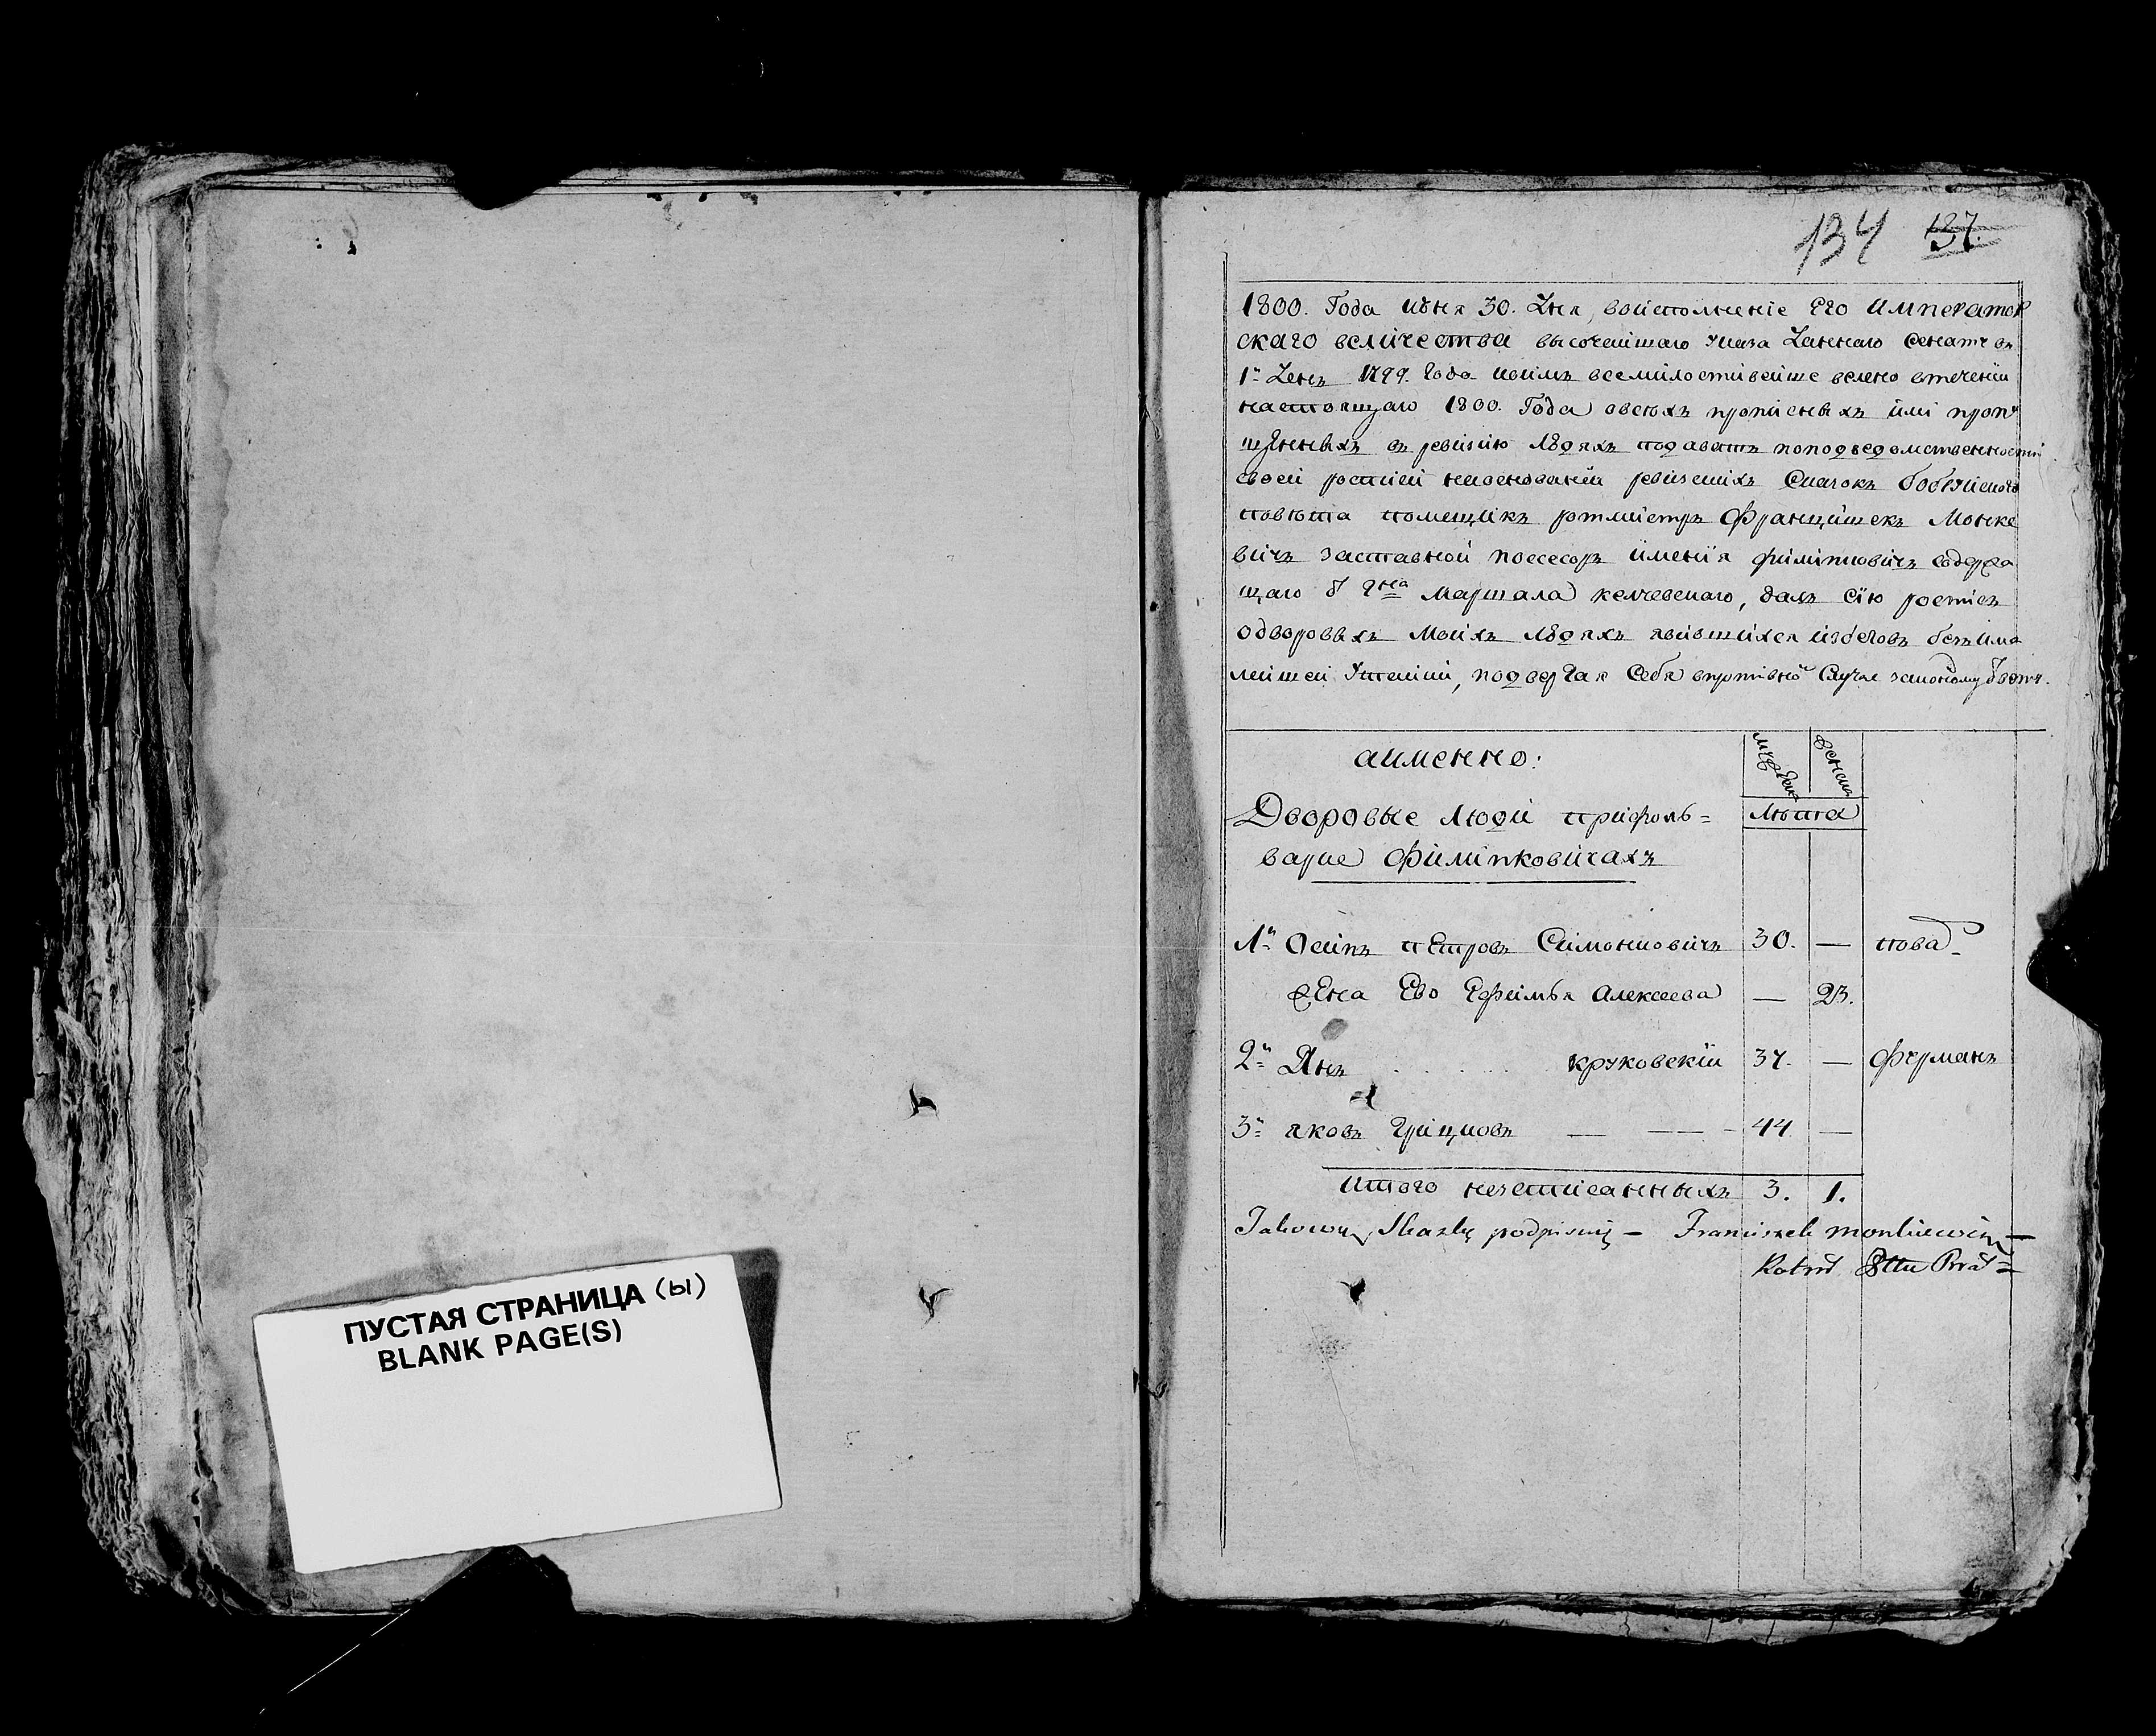 134 137.
1800. Года июня 30. дня, воисполненіе Его Император
скаго величества высочайшаго указа даннаго сенату въ
1й день 1799. Года коимъ всемилостивейше велено втечении
настоящаго 1800. Года овсехъ прописныхъ или пропу
щенныхъ в ревизию людяхъ подавать поподведомственности
своей росписи наосновании ревизскихъ сказокъ бобруйского
повета помещикъ ротмистръ Францишекъ Монке
вичъ заставной посесоръ имения филипковичъ содержа
щаго от гдна Маршала келчевскаго, далъ сию роспись
одворовыхъ моихъ людяхъ явившихся избеговъ безъ има
лейшей утайки, подвергая себя впротивно случае законому ответу.
аименно:
мужеска женска
Дворовые люди прифоль=
лета
варке филипковичахъ
1й Осипъ петровъ Симоновичъ 30. — пова
жена Ево Ефимья Алексеева — 23.
2й Янъ круковскій 37. — фурманъ
3й яковъ грицковъ — — — 44 —
итого незаписанныхъ 3. 1.
Takowu Skazkę podpisuię — Franciszek monkiewicz —
Rotm
ПУСТАЯ СТРАНИЦА (Ы)
BLANK PAGE(S)